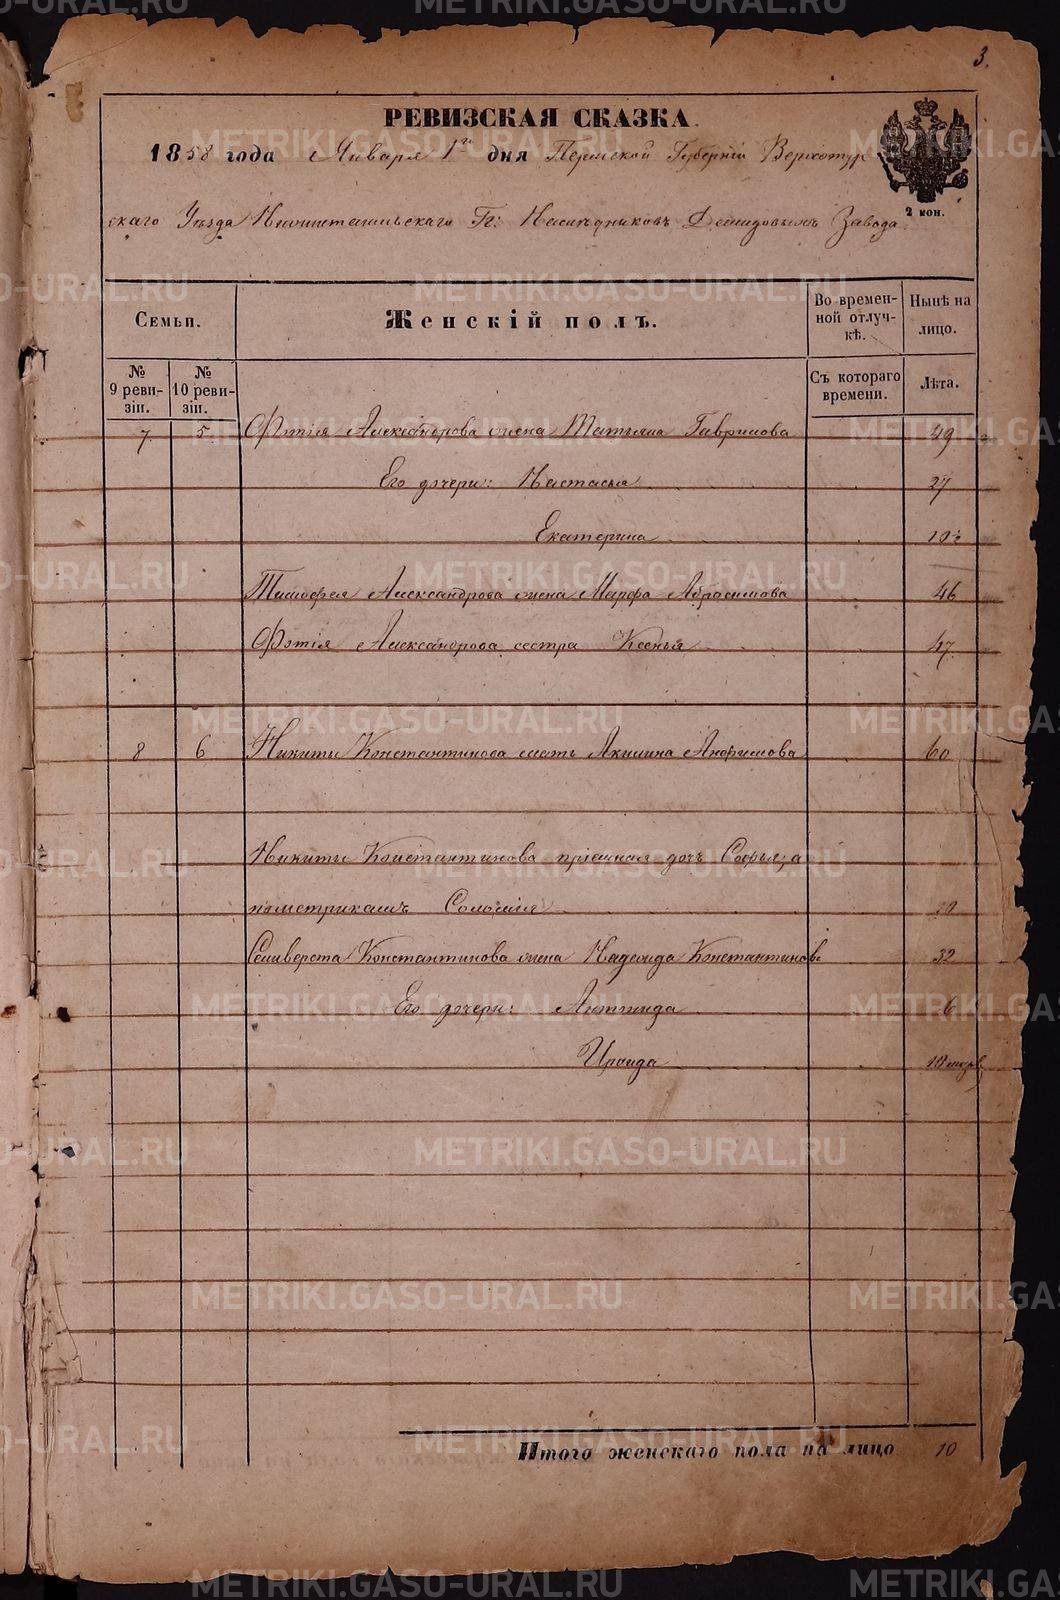 3.
РЕВИЗСКАЯ СКАЗКА.
1858 года Января 1го дня Пермской Губерніи Верхотур
2 коп.
скаго Уѣзда Нижнетагильскаго Гг: Наслѣдниковъ Демидовыхъ Завода.
Семьи.
Женскій полъ.
Во времен-
ной отлуч-
кѣ.
Нынѣ на
лицо.
№
9 реви-
зіи.
№
10 реви-
зіи.
Съ котораго
времени.
Лѣта.
7. 5. Фотія Александрова жена Татьяна Гаврилова 49
Его дочери: Настасья 27
Екатерина
Тимофея Александрова жена Марфа Абросимова 46
Фотія Александрова сестра Ксенья 47
8 6 Никиты Константинова мать Акилина Анфимова 60
Никиты Константинова пріемная дочь Софья, а
пометрикамъ Соломія
Селиверста Константинова жена Надежда Константинов 32
Его дочери: 6
Ираида
Итого женскаго пола на лицо 10
METRIKI.GASO-URAL.RU